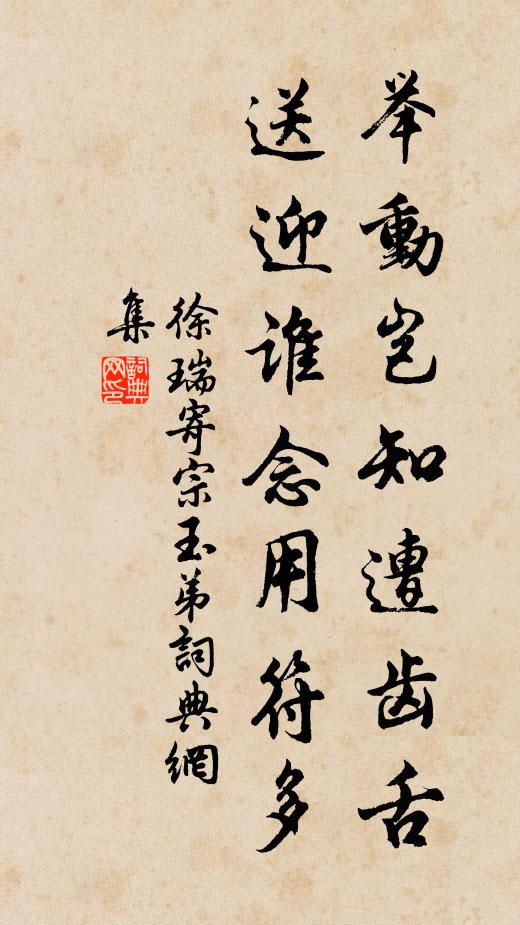 举動岂知遭齿舌
送迎谁念用符多
徐瑞寄宗玉弟詞典網
集
詞典网印